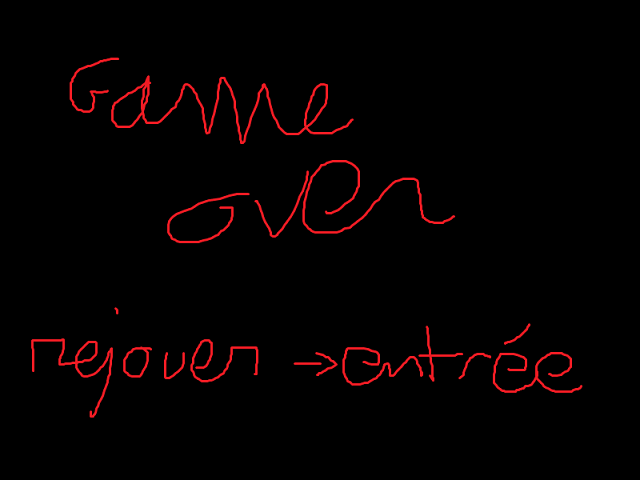 Game
over
rejouer → entrée